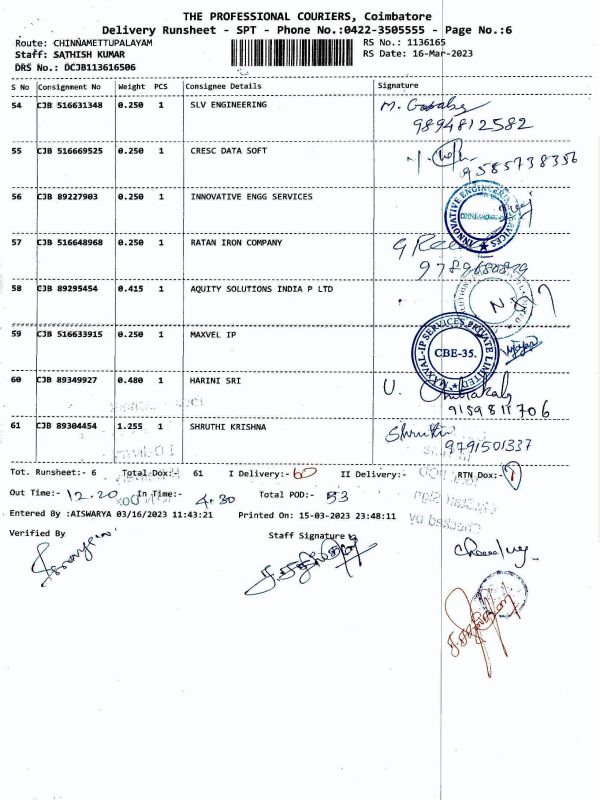 THE PROFESSIONAL COURIERS, Coimbatore
Delivery Runsheet - SPT - Phone No.:0422-3505555 - Page No.:6
Route: CHINNAMETTUPALAYAM
RS No.: 1136165
Staff: SATHISH KUMAR
RS Date: 16-Mar-2023
DRS No.: DCJB113616506
S No Consignment No Weight PCS Consignee Details Signature
54 CJB 516631348 0.250 1 SLV ENGINEERING
9894812582
55 CJB 516669525 0.250 1 CRESC DATA SOFT
9585738356
56 CJB 89227903 0.250 1 INNOVATIVE ENGG SERVICES
INNOVATIVE ENGINEERING SERVICES
57 CJB 516648968 0.250 1 RATAN IRON COMPANY
58 CJB 89295454 0.415 1 AQUITY SOLUTIONS INDIA P LTD
59 CJB 516633915 0.250 1 MAXVEL IP
MAXVAL-IP SERVICES PRIVATE LIMITED
CBE-35.
60 CJB 89349927 0.480 1 HARINI SRI
U.
9159811706
61 CJB 89304454 1.255 1 SHRUTHI KRISHNA
Shruthi
9791501337
Tot. Runsheet:- 6 Total Dox:- 61 I Delivery:- 60 II Delivery:- RTN Dox:- 1
Out Time:- 12.20 In Time:- 4.30 Total POD:- 53
Entered By :AISWARYA 03/16/2023 11:43:21 Printed On: 15-03-2023 23:48:11
Verified By Staff Signature